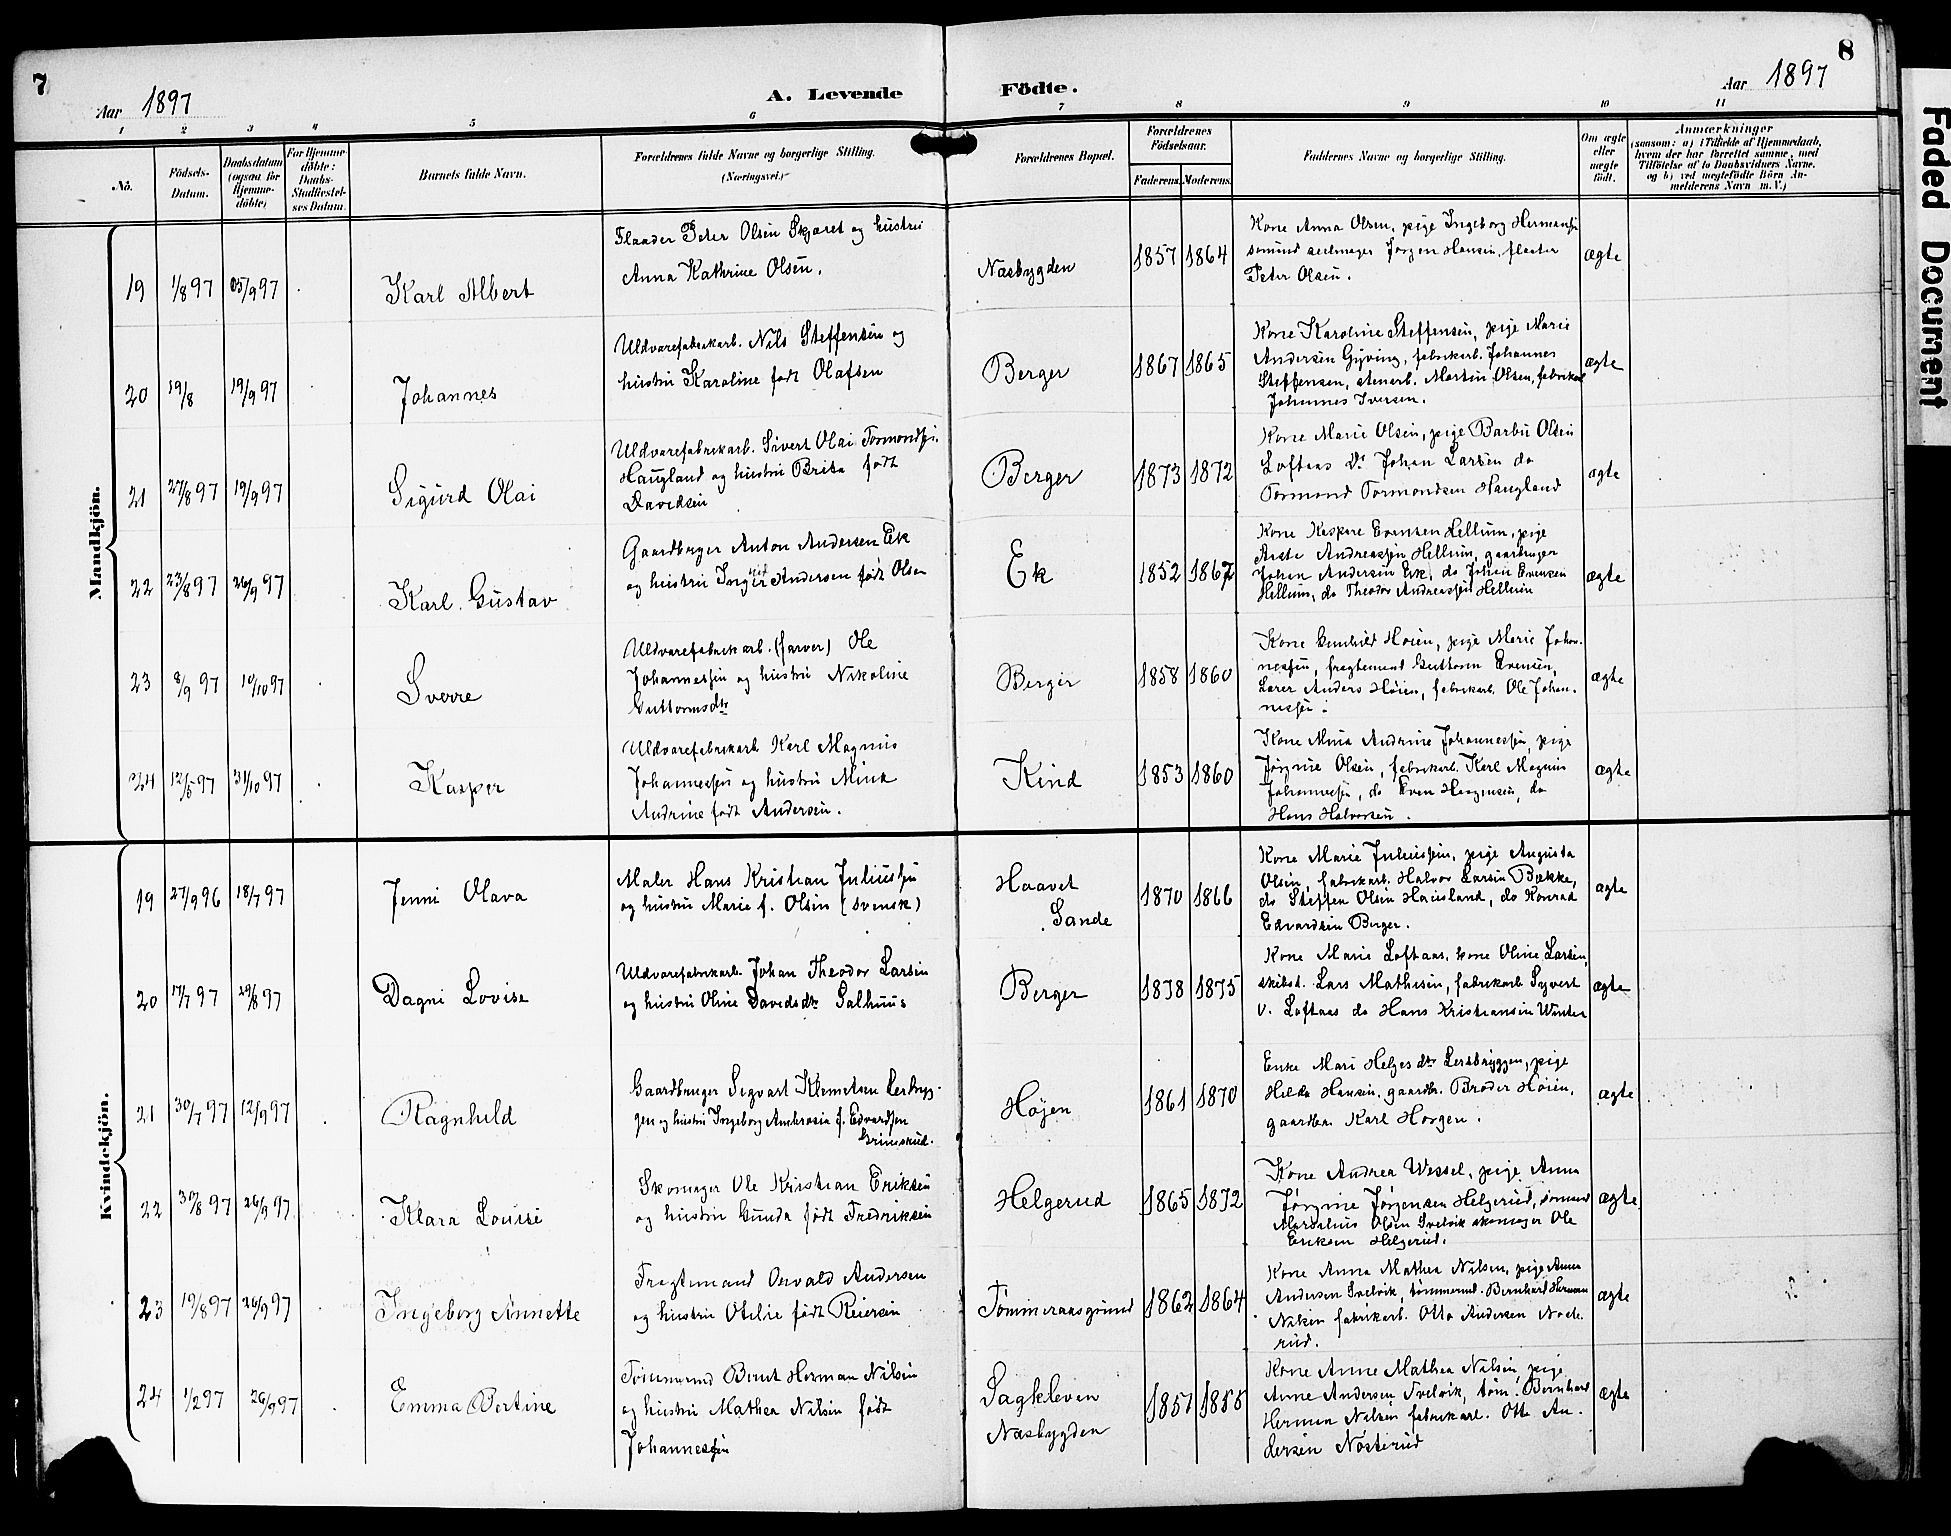 7
8
Aar 1897
A. Levende
Födte.
Aar 1897
1 2 3 4 5 6 7 8 9 10 11
No.
Födsels-
Datum.
Daabsdatum
(ogsaa for
Hjemme-
döbte)
For Hjemme-
döbte:
Daabs-
Stadfæstel-
ses Datum.
Barnets fulde Navn.
Forældrenes fulde Navne og borgerlige Stilling.
(Næringsvei.)
Forældrenes Bopæl.
Forældrenes
Födselsaar.
Faderens. Moderens.
Faddernes Navne og borgerlige Stilling.
Om ægte
eller
uægte
födt.
Anmærkninger
(saasom: a) i Tilfælde af Hjemmedaab,
hvem der har forrettet samme, med
Tilföielse af to Daabsvidners Navne,
og b) ved uægtefödte Börn An-
melderens Navn m. V.)
Mandkjön.
19 1/8 97 05/9 97 Karl Albert
Flaader Peter Olsen Skjaret og hustru
Anna Kathrine Olsen.
Nasbygden 1857 1864
Kone Anna Olsen, pige Ingeborg Hermansen
sømand Jørgen Hansen, flaader
Peter Olsen.
ægte
20 19/8 19/9 97 Johannes
Uldvarefabrikarb. Nils Steffensen og
hustru Karoline født Olafsen
Berger 1867 1865
Kone Karoline Steffensen, pige Marie
Andersen Gjving, fabrikarb. Johannes
Steffensen, stenarb. Martin Olsen, fabrikar
Johannes Iversen.
ægte
21 27/8 97 19/9 97 Sigurd Olai
Uldvarefabrikarb. Sivert Olai Tormondsen
Haugland og hustru Brita født
Davidsen
Berger 1873 1872
Kone Marie Olsen, pige Barbu Olsen
Loftaas Johan Larsen do
Tormond Tormondsen Haugland
ægte
22 23/8 97 26/9 97 Karl Gustav
Gaardbruger Anton Andersen Ek
og hustru Andersen født Olsen
Ek 1852 1867
Kone Kaspare Evensen Hellum, pige
Andreassen Hellum, gaardbruger
Johan Andersen Ek, do Johan Evensen
Hellum, do Theodor Andreassen Hellum
ægte
23 8/9 97 10/10 97 Sverre
Uldvarefabrikarb. (farver) Ole
Johannessen og hustru Nikoline
Guttormsdtr
Berger 1858 1860
Kone Gunhild Høien, pige Marie Johan-
nessen, fragtemand Guttorm Evensen,
Lærer Anders Høien, fabrikarb. Ole Johan-
nessen.
ægte
24 12/5 97 31/10 97 Kasper
Uldvarefabrikarb Karl Magnus
Johannessen og hustru Mina
Andrine født Andersen.
Kind 1853 1860
Kone Mina Andrine Johannessen, pige
Jørgine Olsen, fabrikarb. Karl Magnus
Johannessen, do Even Haagensen, do
Hans Halvorsen.
ægte
Kvindekjön.
19 27/9 96 18/7 97 Jenni Olava
Maler Hans Kristian Juliussen
og hustru Marie f. Olsen (svensk)
Haavet
Sande
1870 1866
Kone Marie Juliussen, pige Augusta
Olsen, fabrikarb. Halvor Larsen Bække,
do Steffen Olsen Hauisland, do Konrad
Edvardsen Berger.
ægte
20 17/7 97 29/8 97 Dagni Lovise
Uldvarefabrikarb. Johan Theodor Larsen
og hustru Oline Davidsdtr Salhuus
Berger 1878 1875
Kone Marie Loftaas, kone Oline Larsen,
skibst. Lars Mathisen, fabrikarb Syvert
V. Loftaas do Hans Kristiansen Winter
ægte
21 30/7 97 12/9 97 Ragnhild
Gaardbruger Sigvart Klemetsen Lersbryg-
gen og hustru Ingeborg Ambrosia f. Edvardsen
Grimsrud.
Højen 1861 1870
Enke Mari Helgesdtr Lersbryggen, pige
Helda Hansen, gaardbr. Broder Høien,
gaardbr. Karl Horgen.
ægte
22 30/8 97 26/9 97 Klara Louise
Skomager Ole Kristian Eriksen
og hustru Gunda født Fredriksen
Helgerud 1865 1872
Kone Andrea Wessel, pige Anna
Jørgine Jørgensen Helgerud, sømand
Marselius Olsen Svelvik skomager Ole
Eriksen Helgerud.
ægte
23 19/8 97 26/9 97 Ingeborg Annette
Fragtemand Osvald Andersen
og hustru Otelie født Reiersen
Tømmeraasgrund 1862 1864
Kone Anna Mathea Nilsen, pige Anna
Andersen Svelvik, tømmermd. Bernhard Herman
Nilsen fabrikarb. Otto Andersen Noste-
rud.
ægte
24 1/2 97 26/9 97 Emma Bertine
Tømmermd Bernt Herman Nilsen
og hustru Mathea Nilsen født
Johannessen
Sagkleven
Nasbygden
1857 1855
Kone Anne Mathea Nilsen, pige
Anne Andersen Svelvik, tøm. Bernhard
Herman Nilsen fabrikarb. Otto An-
dersen Nosterud
ægte
Faded Document